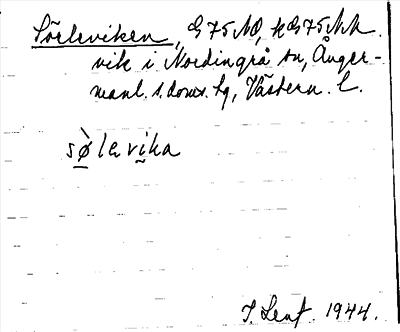 Sörleviken, G75NO, k G75NN.
vik i Nordingrå sn, Ånger-
manl. s. doms. tg, Västern. l.
sø̀levika
J. Leaf. 1944.